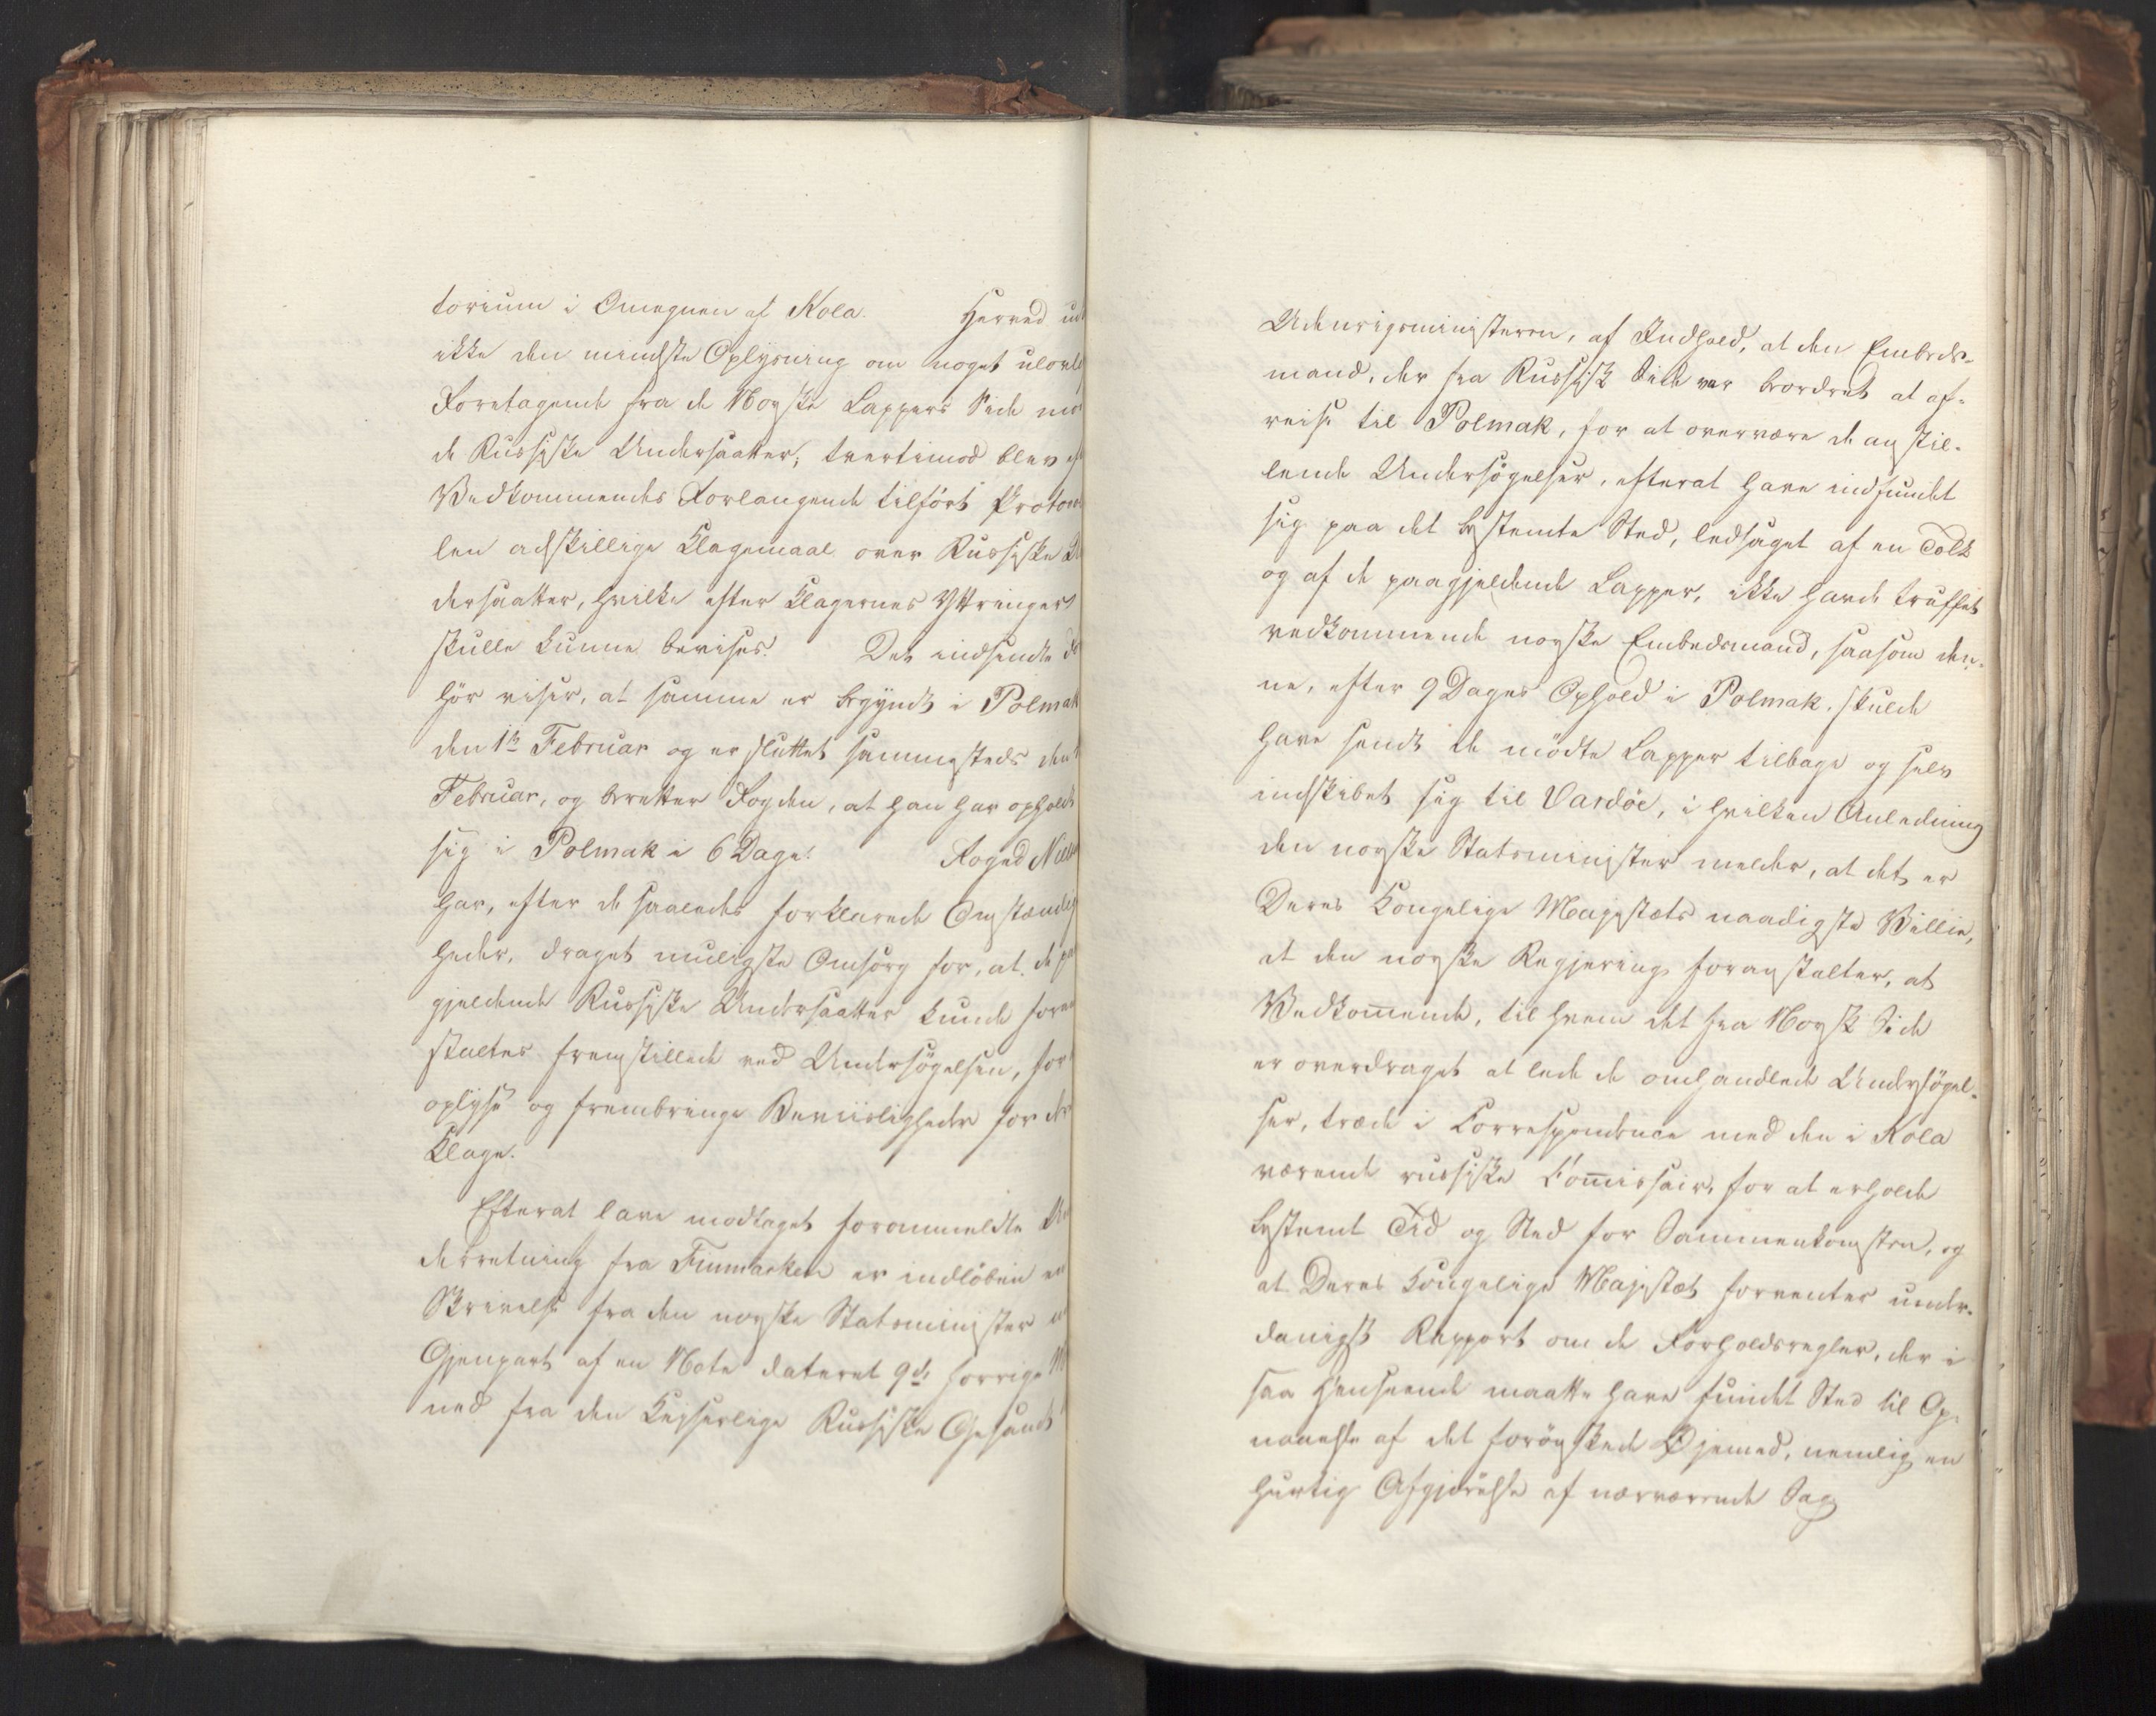 torium i Omegnen af Kola. Herved
ikke den mindste Oplysning om noget ulovl
Foretagende fra de Norske Lappers Side mo
de Russiske Undersaatter; tvertimod blev
Vedkommendes Forlangende tilført Protoco
len adskillige Klagemaal over Russiske
dersaatter, hvilke efter Klagernes Yttringer
skulle kunne bevises. Det indsendte
hør viser, at samme er begyndt i Polmak
den 1te Februar og er sluttet sammesteds den
Februar, og beretter Fogden, at han har opholdt
sig i Polmak i 6 Dage. Foged
har, efter de saaledes forklarede Omstændig
heder, draget muligste Omsorg for, at de
gjeldende Russiske Undersaatter kunde
staltes fremstillede ved Undersøgelsen, for
oplyse og frembringe Beviisligheder for
Klage.
Efterat have modtaget forommeldte
derretning fra Finmarken er indløben en
Skrivelse fra den norske Statsminister
Gjenpart af en Note dateret 9de forrige
ned fra den Keiserlige Russiske Gesandt
Udenrigsministeren, af Indhold, at den Embeds-
mand, der fra Russisk Side var beordret at af-
reise til Polmak, for at overvære de anstil-
lende Undersøgelser, efterat have indfundet
sig paa det bestemte Sted, ledsaget af en Tolk
og af de paagjeldende Lapper, ikke havde truffet
vedkommende norske Embedsmand, saasom den-
ne, efter 9 Dages Ophold i Polmak, skulde
have sendt de mødte Lapper tilbage og selv
indskibet sig til Vardøe, i hvilken Anledning
den norske Statsminister melder, at det er
Deres Kongelige Majestæts naadigste Villie,
at den norske Regjering foranstalter, at
Vedkom̅ende, til hvem det fra Norsk Side
er overdraget at lede de omhandlede Undersøgel-
ser, træde i Correspondence med den i Kola
værende russiske Com̅issair, for at erholde
bestemt Tid og Sted for Sammenkomsten, og
at Deres Kongelige Majestæt forventer under-
danigst Rapport om de Forholdsregler, der i
saa Henseende maatte have fundet Sted til Op-
naaelse af det forønskede Øjemed, nemlig en
hurtig Afgjørelse af nærværende Sag